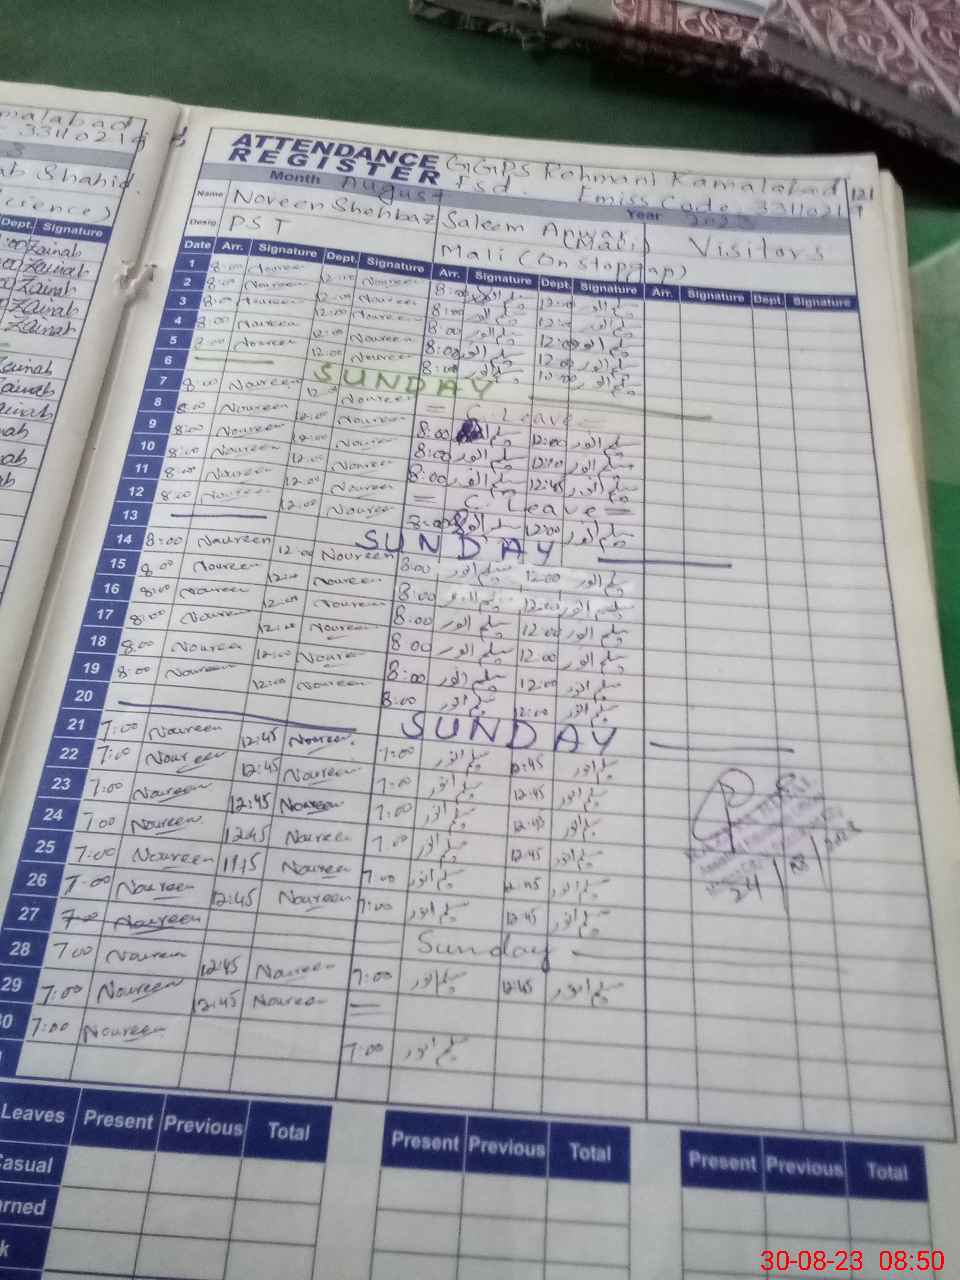 ATTENDANCE REGISTER
GGPS Rehmani Kamalabad
Fsd. Emiss Code 33110217
121
Month August Year 2023
Name Noveen Shehbaz Saleem Anwar (Mali) Visitors
Desig PST Mali (On Stop gap)
Date Arr. Signature Dept. Signature Arr. Signature Dept. Signature Arr. Signature Dept. Signature
1 8:00 Noureen 12:00 Noureen 8:00 سلیم انور 12:00 سلیم انور
2 8:00 Noureen 12:00 Noureen 8:00 سلیم انور 12:00 سلیم انور
3 8:00 Noureen 12:00 Noureen 8:00 سلیم انور 12:00 سلیم انور
4 8:00 Noureen 12:00 Noureen 8:00 سلیم انور 12:00 سلیم انور
5 8:00 Noureen 12:00 Noureen 8:00 سلیم انور 12:00 سلیم انور
6 SUNDAY
7 8:00 Noureen Noureen = C. Leave =
8 8:00 Noureen 12:00 Noureen 8:00 سلیم انور 12:00 سلیم انور
9 8:00 Noureen 12:00 Noureen 8:00 سلیم انور 12:00 سلیم انور
10 8:00 Noureen 12:00 Noureen 8:00 سلیم انور 12:45 سلیم انور
11 8:00 Noureen 12:00 Noureen = C. Leave =
12 8:00 Noureen 12:00 Noureen 8:00 سلیم انور 12:00 سلیم انور
13 SUNDAY
14 8:00 Noureen 12:00 Noureen 8:00 سلیم انور 12:00 سلیم انور
15 8:00 Noureen 12:00 Noureen 8:00 سلیم انور 12:00 سلیم انور
16 8:00 Noureen 12:00 Noureen 8:00 سلیم انور 12:00 سلیم انور
17 8:00 Noureen 12:00 Noureen 8:00 سلیم انور 12:00 سلیم انور
18 8:00 Noureen 12:00 Noureen 8:00 سلیم انور 12:00 سلیم انور
19 8:00 Noureen 12:00 Noureen 8:00 سلیم انور 12:00 سلیم انور
20 SUNDAY
21 7:00 Noureen 12:45 Noureen 7:00 سلیم انور 12:45 سلیم انور
22 7:00 Noureen 12:45 Noureen 7:00 سلیم انور 12:45 سلیم انور
23 7:00 Noureen 12:45 Noureen 7:00 سلیم انور 12:45 سلیم انور
24 7:00 Noureen 12:45 Noureen 7:00 سلیم انور 12:45 سلیم انور
25 7:00 Noureen 11:15 Noureen 7:00 سلیم انور سلیم انور
26 7:00 Noureen 12:45 Noureen 7:00 سلیم انور 12:45 سلیم انور
27 7:00 Noureen Sunday
28 7:00 Noureen 12:45 Noureen 7:00 سلیم انور 12:45 سلیم انور
29 7:00 Noureen 12:45 Noureen =
30 7:00 Noureen 7:00 سلیم انور
Leaves Present Previous Total Present Previous Total Present Previous Total
Casual
30-08-23 08:50